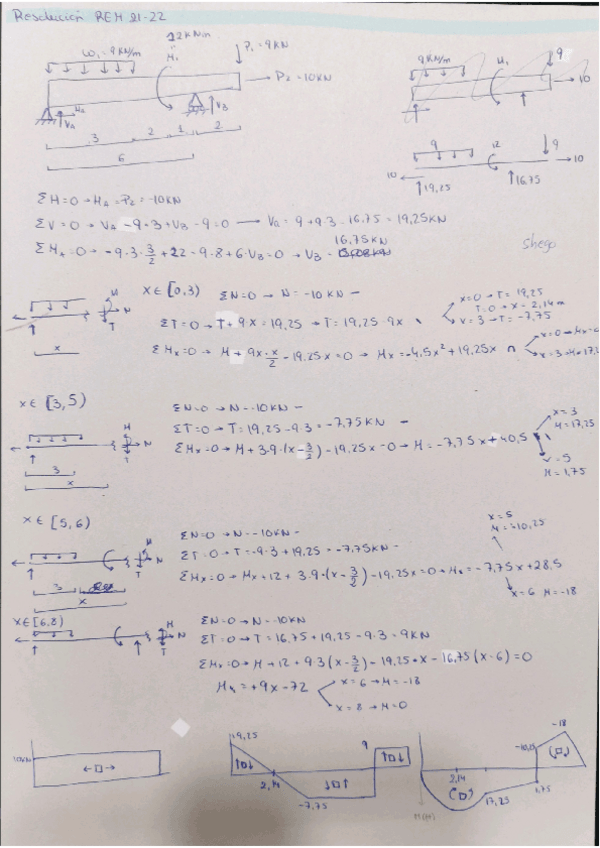 Resolución REM 21-22
12 kN·m
ω₁ = 9 kN/m
M₁
P₁ = 9KN
P₂ = 10KN
V_A
V_B
3 2 1 2
6
9KN/m
M₁
9
10
9 12 9
10 10
19,25 16,75
ΣH=0 → H_A = P₂ = -10KN
ΣV=0 → V_A - 9·3 + V_B - 9 = 0 → V_A = 9 + 9·3 - 16,75 = 19,25KN
16,75 KN
ΣM_A = 0 → -9·3·3/2 + 22 - 9·8 + 6·V_B = 0 → V_B =
shego
x∈[0,3) ΣN=0 → N = -10 KN -
ΣT=0 → T + 9·x = 19,25 → T = 19,25 - 9x
x=0 → T = 19,25
T=0 → x = 2,14 m
x=3 → T = -7,75
ΣM_x=0 → M + 9x·x/2 - 19,25x = 0 → M_x = -4,5x² + 19,25x
M
N
T
x
x∈[3,5)
ΣN=0 → N = -10KN -
ΣT=0 → T = 19,25 - 9·3 = -7,75 KN -
ΣM_x=0 → M + 3·9·(x - 3/2) - 19,25x = 0 → M = -7,75x + 40,5
x=3
M = 17,25
x=5
M = 1,75
M
N
T
3
x
x∈[5,6)
ΣN=0 → N = -10KN -
ΣT=0 → T = -9·3 + 19,25 = -7,75KN -
ΣM_x=0 → M_x + 12 + 3·9·(x - 3/2) - 19,25x = 0 → M_x = -7,75x + 28,5
x=5
M = -10,25
x=6 M = -18
M
N
T
3
x
x∈[6,8)
ΣN=0 → N = -10KN
ΣT=0 → T = 16,75 + 19,25 - 9·3 = 9KN
ΣM_x=0 → M + 12 + 9·3(x - 3/2) - 19,25·x - 16,75(x - 6) = 0
M_x = +9x - 72
x=6 → M = -18
x=8 → M = 0
M
N
T
10KN
19,25
2,14
-7,75
9
2,14
17,25
1,75
-10,25
-18